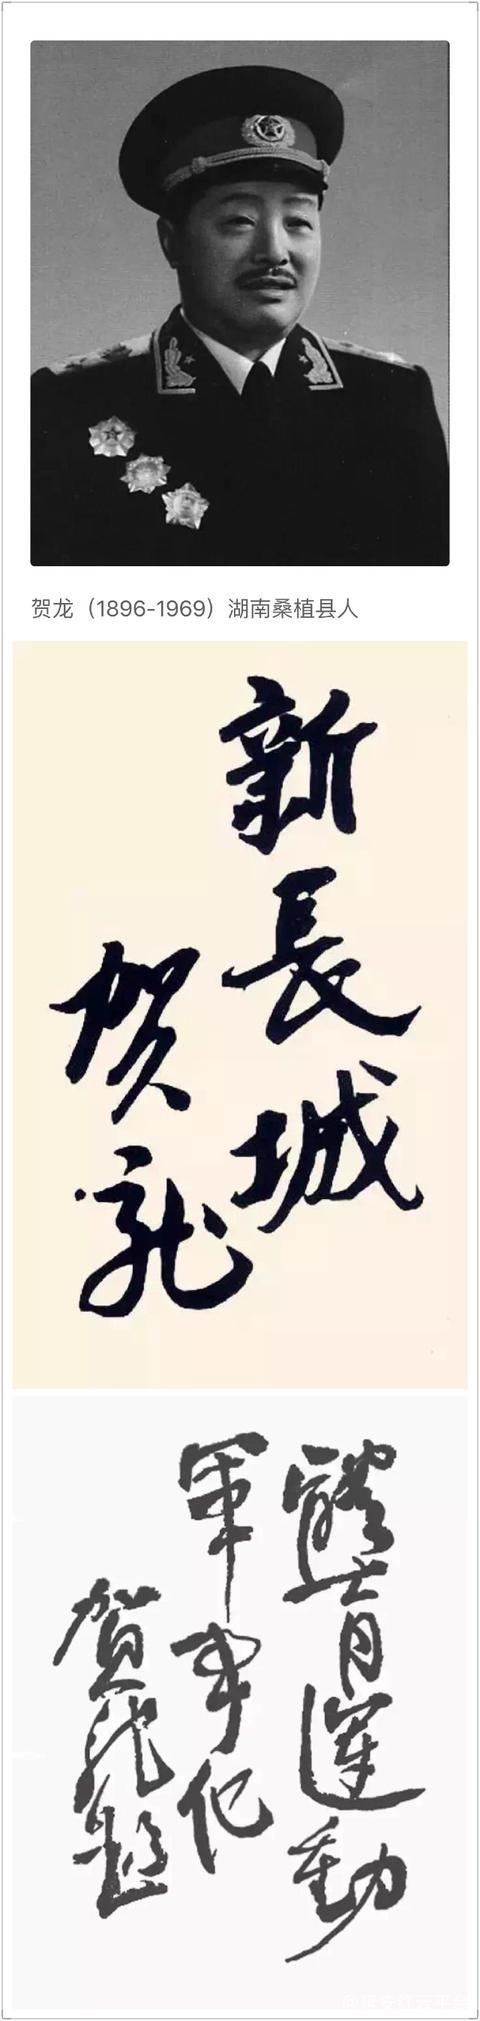 贺龙（1896-1969）湖南桑植县人
新長城
贺龙
體育運動
軍事化
賀龙題